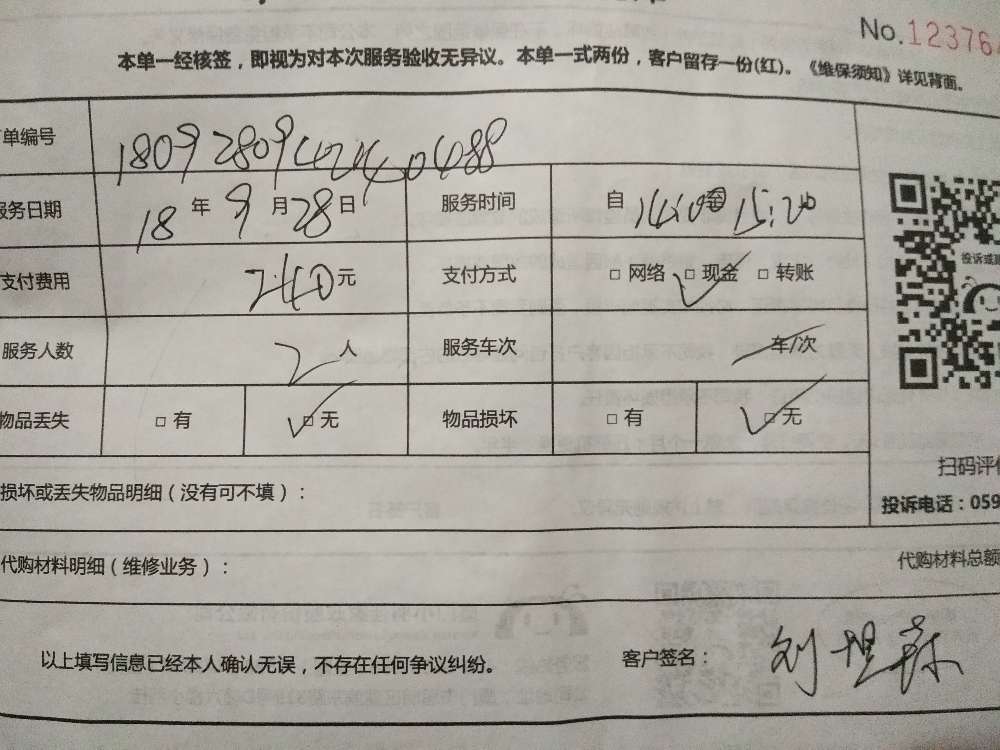 No.12376
本单一经核签，即视为对本次服务验收无异议。本单一式两份，客户留存一份(红)。《维保须知》详见背面。
单编号 180928094
服务日期 18 年 9 月 28 日 服务时间 自 15:20
支付费用 240 元 支付方式 □ 网络 □ 现金 □ 转账
服务人数 2 人 服务车次 车/次
物品丢失 □ 有 □ 无 物品损坏 □ 有 □ 无
扫码评价
损坏或丢失物品明细（没有可不填）：
投诉电话：059
代购材料明细（维修业务）：
代购材料总额
以上填写信息已经本人确认无误，不存在任何争议纠纷。 客户签名： 刘